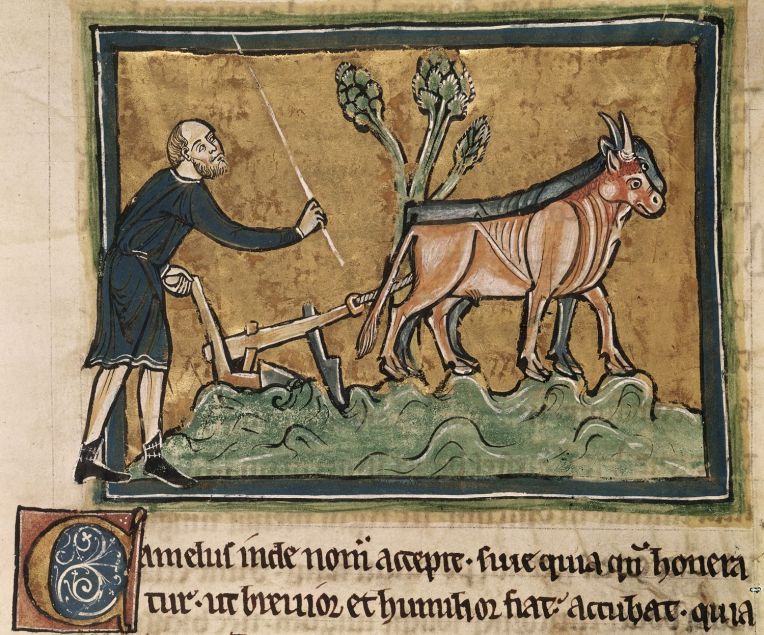 Camelus inde nom̄ accepit · siue quia qn̄ honera
tur · ut breuior et humilior fiat · accubat · quia